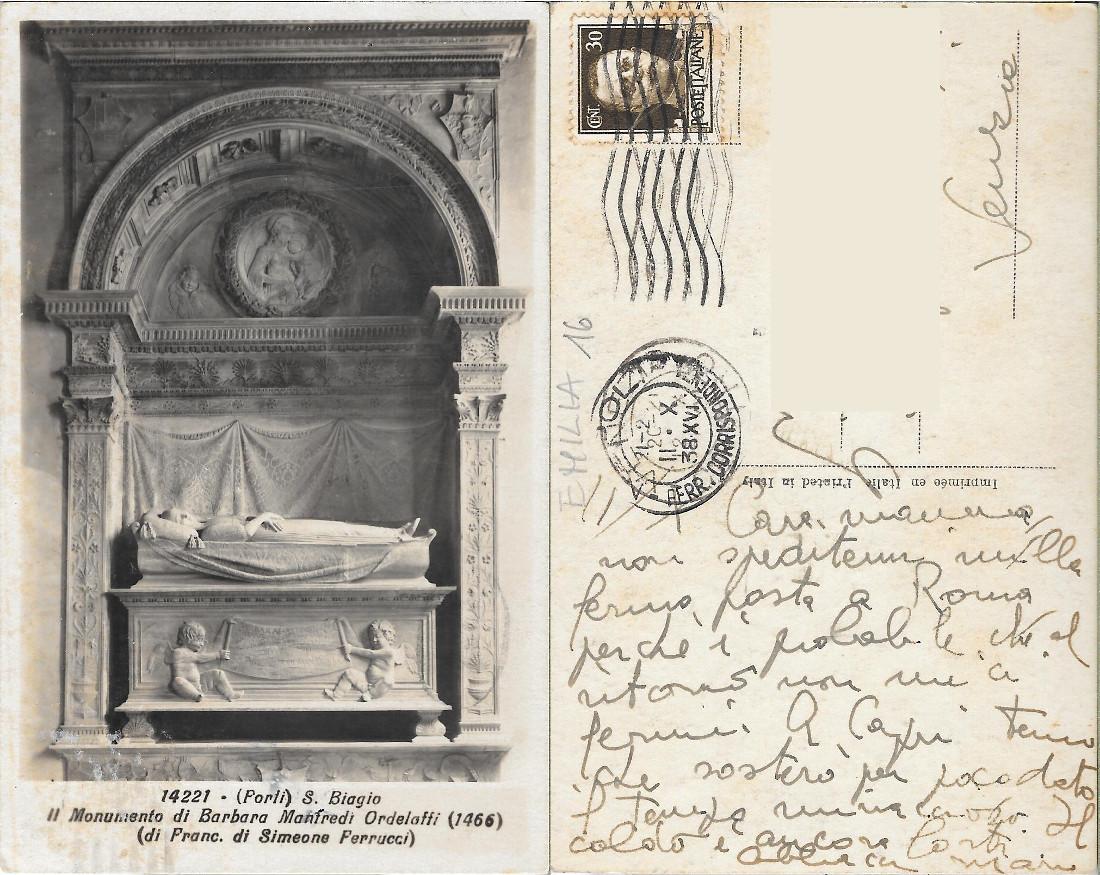 14221 - (Forlì) S. Biagio
Il Monumento di Barbara Manfredi Ordelaffi (1466)
(di Franc. di Simeone Ferrucci)
CENT. 30
POSTE ITALIANE
Venezia
EMILIA 16
VENEZIA
11-X
38-XVI
FERR. CORRISPONDENZE
Imprimée en Italie Printed in Italy
Cara mamma
non speditemi nulla
fermo posta a Roma
perchè è probabile che al
ritorno non mi ci
fermi. A Capri temo
che sosterò per poco dato
il tempo minaccioso. Il
caldo è ancora forte.